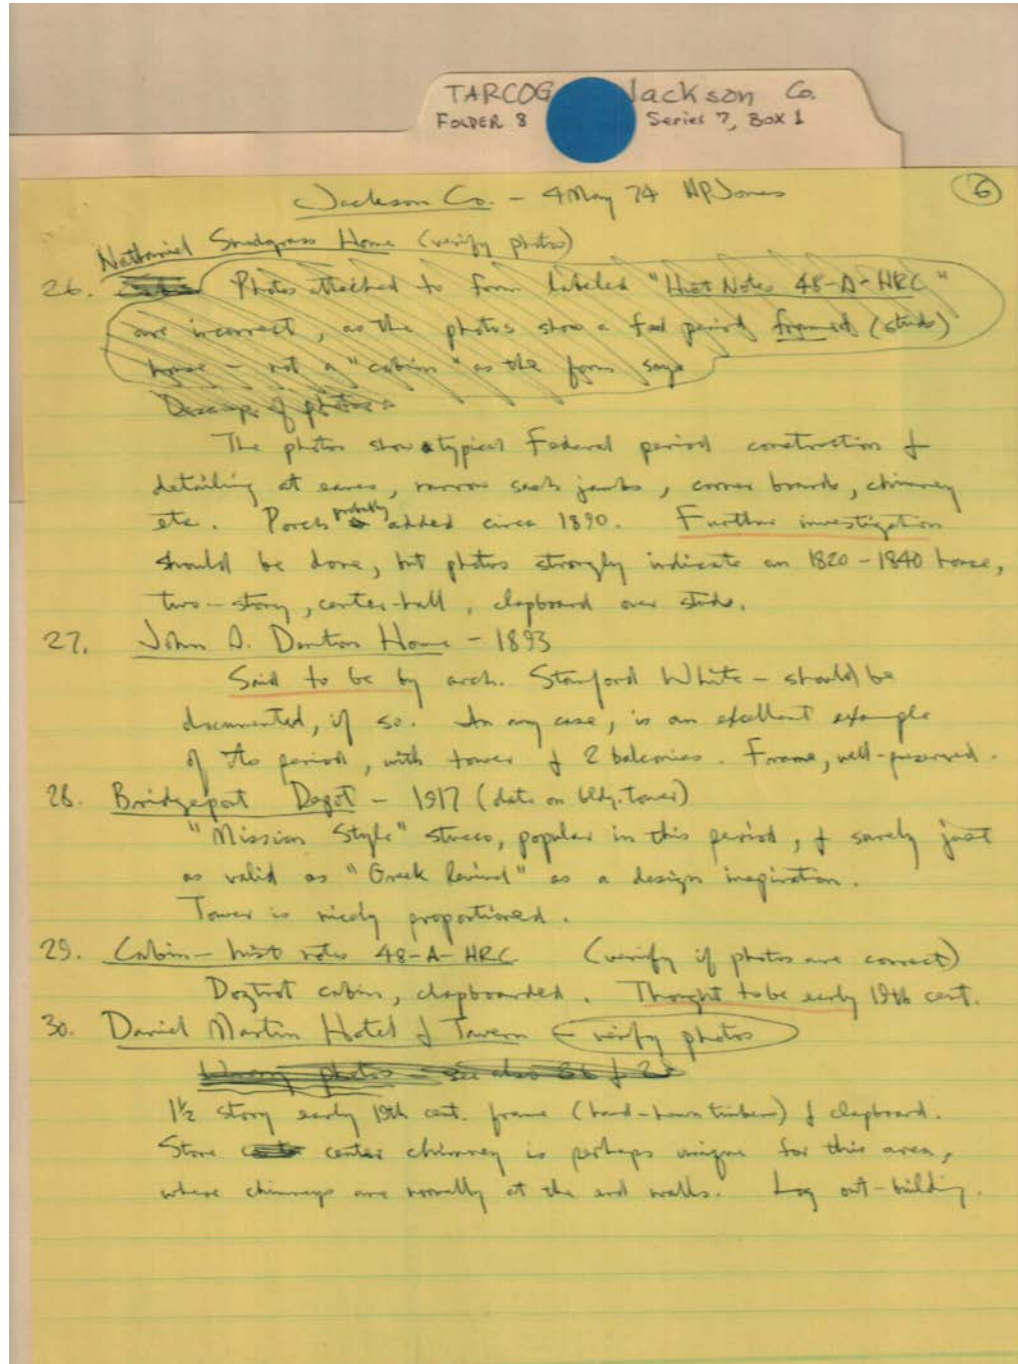 TARCOG Jackson Co.
FOLDER 8 Series 7, Box 1
Jackson Co. - 4 May 74 HP Jones 6
Nathaniel Snodgrass Home (verify photos)
26. Photos attached to form labeled "Hist Notes 48-A-HRC"
are incorrect, as the photos show a fed period framed (studs)
house - not a "cabin" as the form says
of photos
The photos show typical Federal period construction &
detailing at eaves, narrow sash jambs, corner boards, chimney
etc. Porch probably added circa 1890. Further investigation
should be done, but photos strongly indicate an 1820-1840 house,
two-story, center-hall, clapboard over studs.
27. John Home - 1893
Said to be by arch. Stanford White - should be
documented, if so. In any case, is an excellent example
of its period, with tower & 2 balconies. Frame, well-preserved.
28. Bridgeport Depot - 1917 (date on bldg. tower)
"Mission Style" stucco, popular in this period, & surely just
as valid as "Greek Revival" as a design inspiration.
Tower is nicely proportioned.
29. Cabin - hist notes 48-A-HRC (verify if photos are correct)
Dogtrot cabin, clapboarded. Thought to be early 19th cent.
30. Daniel Martin Hotel & Tavern - verify photos
photos - see also
1½ story early 19th cent. frame (hand-hewn timbers) & clapboard.
Stone center chimney is perhaps unique for this area,
where chimneys are normally at the end walls. Log out-building.